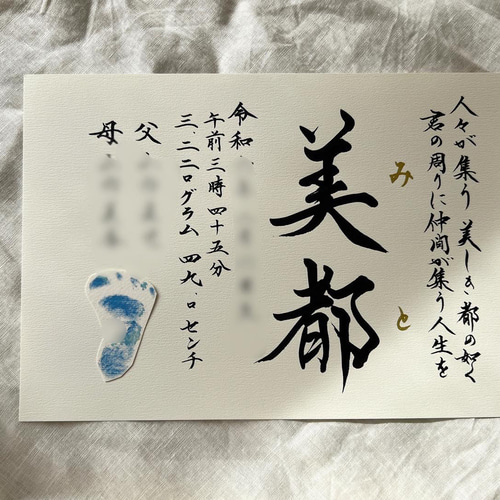 人々が集う 美しき都の如く
君の周りに仲間が集う人生を
みと
美都
令和
午前三時四十五分
三、二二〇グラム 四九.〇センチ
父
母